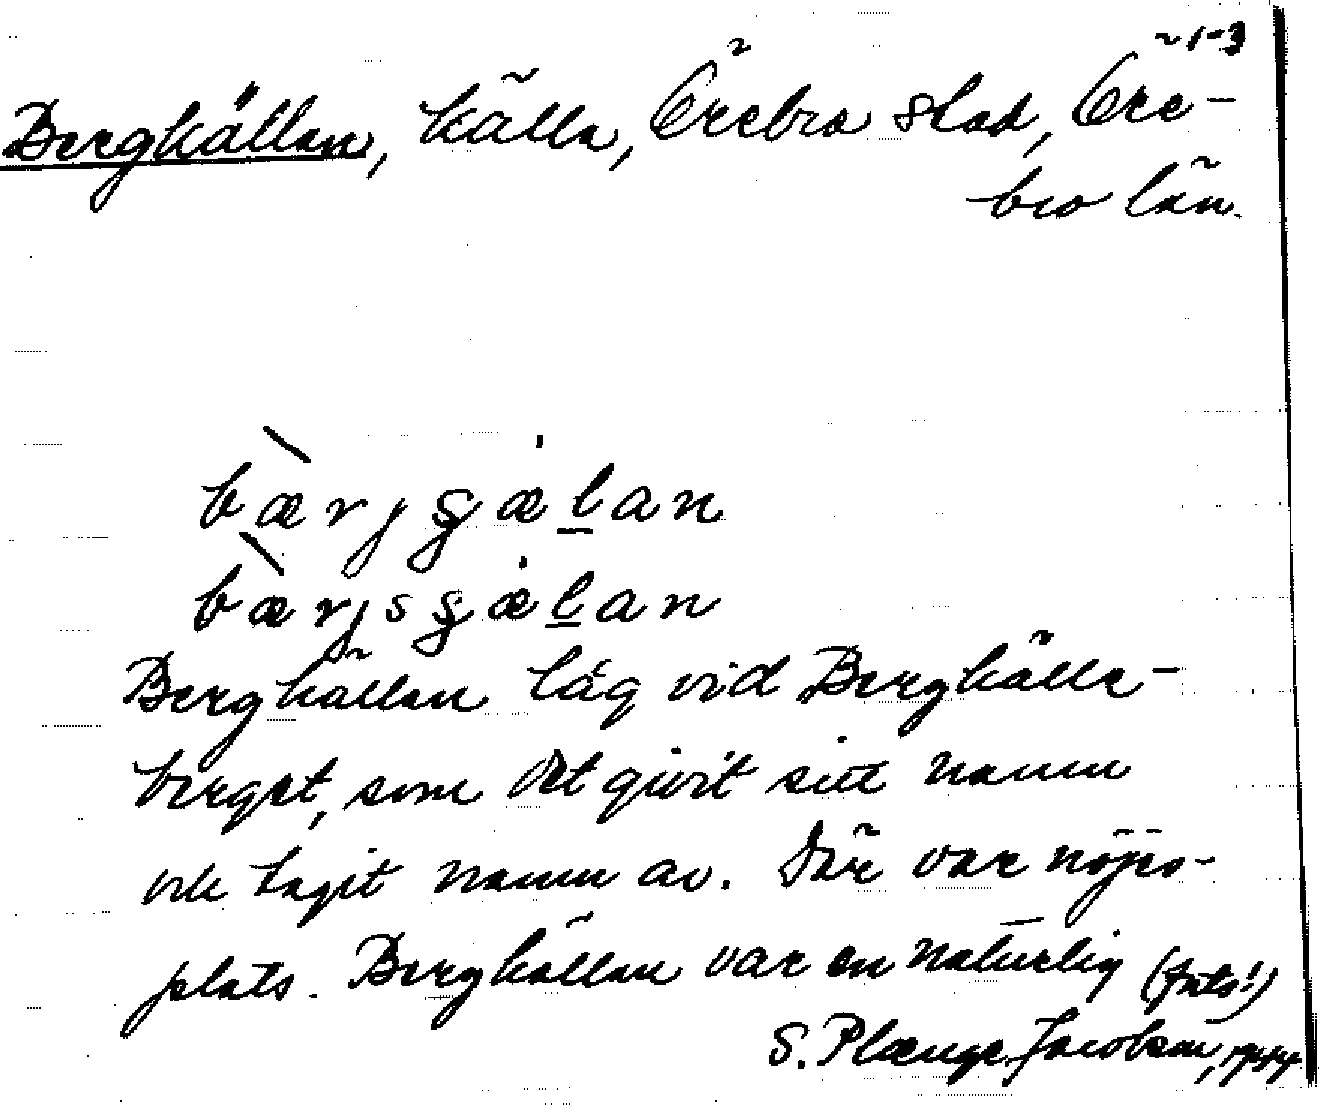 ~1-3
Bergkällan, källa, Örebro stad, Öre-
bro län.
bærjşælan
bærjsşælan
Bergkällan låg vid Bergkälle-
berget, som det givit sitt namn
och tagit namn av. Där var nöjes-
plats. Bergkällan var en naturlig (forts!)
S. Plænge Jacobson,